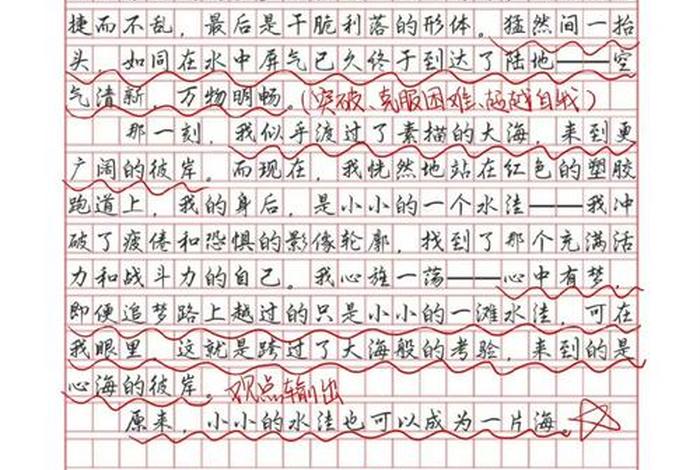 捷而不乱，最后是干脆利落的形体。猛然间一抬
头，如同在水中屏气已久终于到达了陆地——空
气清新，万物明畅。（突破、克服困难、超越自我）
那一刻，我似乎渡过了素描的大海，来到更
广阔的彼岸。而现在，我恍然地站在红色的塑胶
跑道上，我的身后，是小小的一个水洼——我冲
破了疲倦和恐惧的影像轮廓，找到了那个充满活
力和战斗力的自己。我心旌一荡——心中有梦，
即便追梦路上越过的只是小小的一滩水洼，可在
我眼里，这就是跨过了大海般的考验，来到的是
心海的彼岸。观点输出
原来，小小的水洼也可以成为一片海。